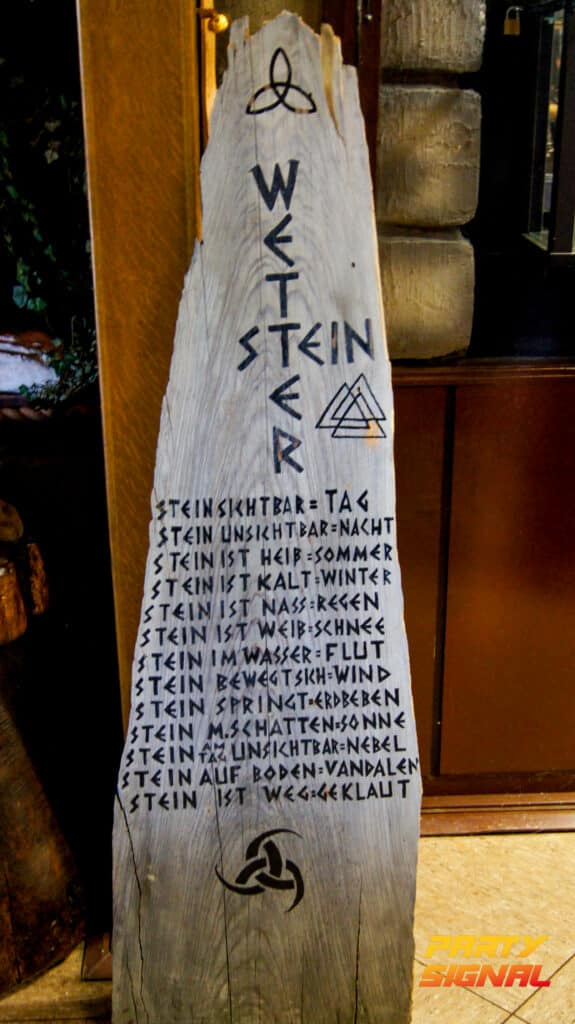 WETTER
STEIN
STEIN SICHTBAR = TAG
STEIN UNSICHTBAR=NACHT
STEIN IST HEIß=SOMMER
STEIN IST KALT=WINTER
STEIN IST NASS=REGEN
STEIN IST WEIß=SCHNEE
STEIN IM WASSER=FLUT
STEIN BEWEGT SICH=WIND
STEIN SPRINGT=ERDBEBEN
STEIN M.SCHATTEN=SONNE
STEIN AM TAG UNSICHTBAR=NEBEL
STEIN AUF BODEN=VANDALEN
STEIN IST WEG=GEKLAUT
PARTY
SIGNAL